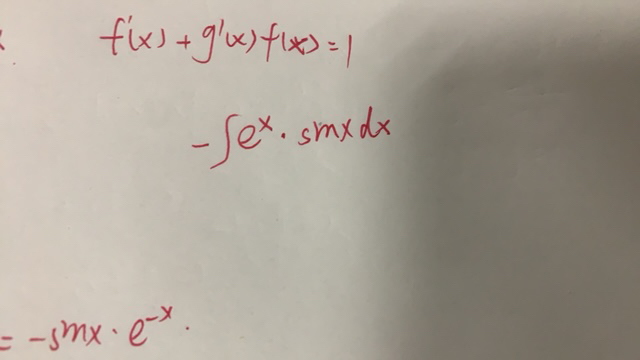 f'(x) + g'(x) f(x) = 1
- ∫ e^x · sinx dx
= - sinx · e^-x .